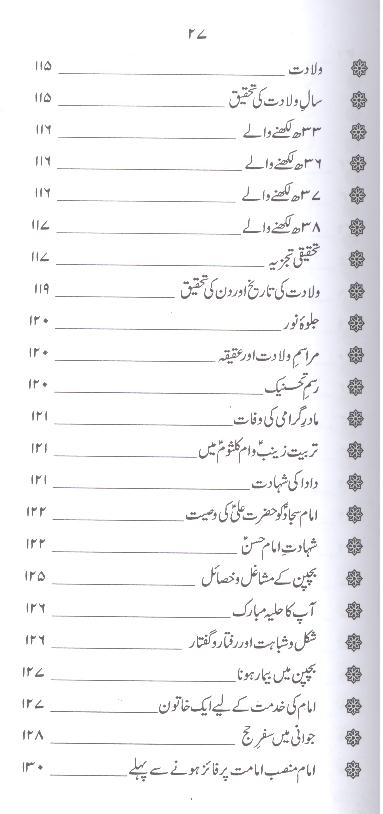 ۲۷
ولادت ۱۱۵
سالِ ولادت کی تحقیق ۱۱۵
۳۳ھ لکھنے والے ۱۱۶
۳۶ھ لکھنے والے ۱۱۶
۳۷ھ لکھنے والے ۱۱۶
۳۸ھ لکھنے والے ۱۱۷
تحقیقی تجزیہ ۱۱۷
ولادت کی تاریخ اور دن کی تحقیق ۱۱۹
جلوۂ نور ۱۲۰
مراسمِ ولادت اور عقیقہ ۱۲۰
رسمِ تحسنیک ۱۲۰
مادرِ گرامی کی وفات ۱۲۱
تربیت زینبؑ و ام کلثومؑ میں ۱۲۱
دادا کی شہادت ۱۲۱
امام سجادؑ کو حضرت علیؑ کی وصیت ۱۲۲
شہادتِ امام حسنؑ ۱۲۲
بچپن کے مشاغل و خصائل ۱۲۵
آپ کا حلیہ مبارک ۱۲۶
شکل و شباہت اور رفتار و گفتار ۱۲۶
بچپن میں بیمار ہونا ۱۲۷
امام کی خدمت کے لیے ایک خاتون ۱۲۷
جوانی میں سفرِ حج ۱۲۸
امام منصب امامت پر فائز ہونے سے پہلے ۱۳۰